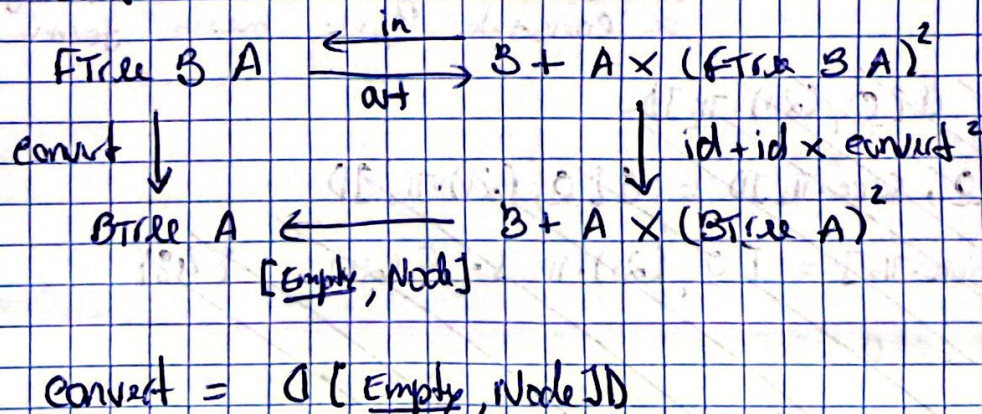 in
FTree B A ⟵ ⟶ B + A × (FTree B A)²
out
convert ↓ ↓ id + id × convert²
BTree A ⟵ B + A × (BTree A)²
[Empty, Node]
convert = ⦇ [Empty, Node] ⦈